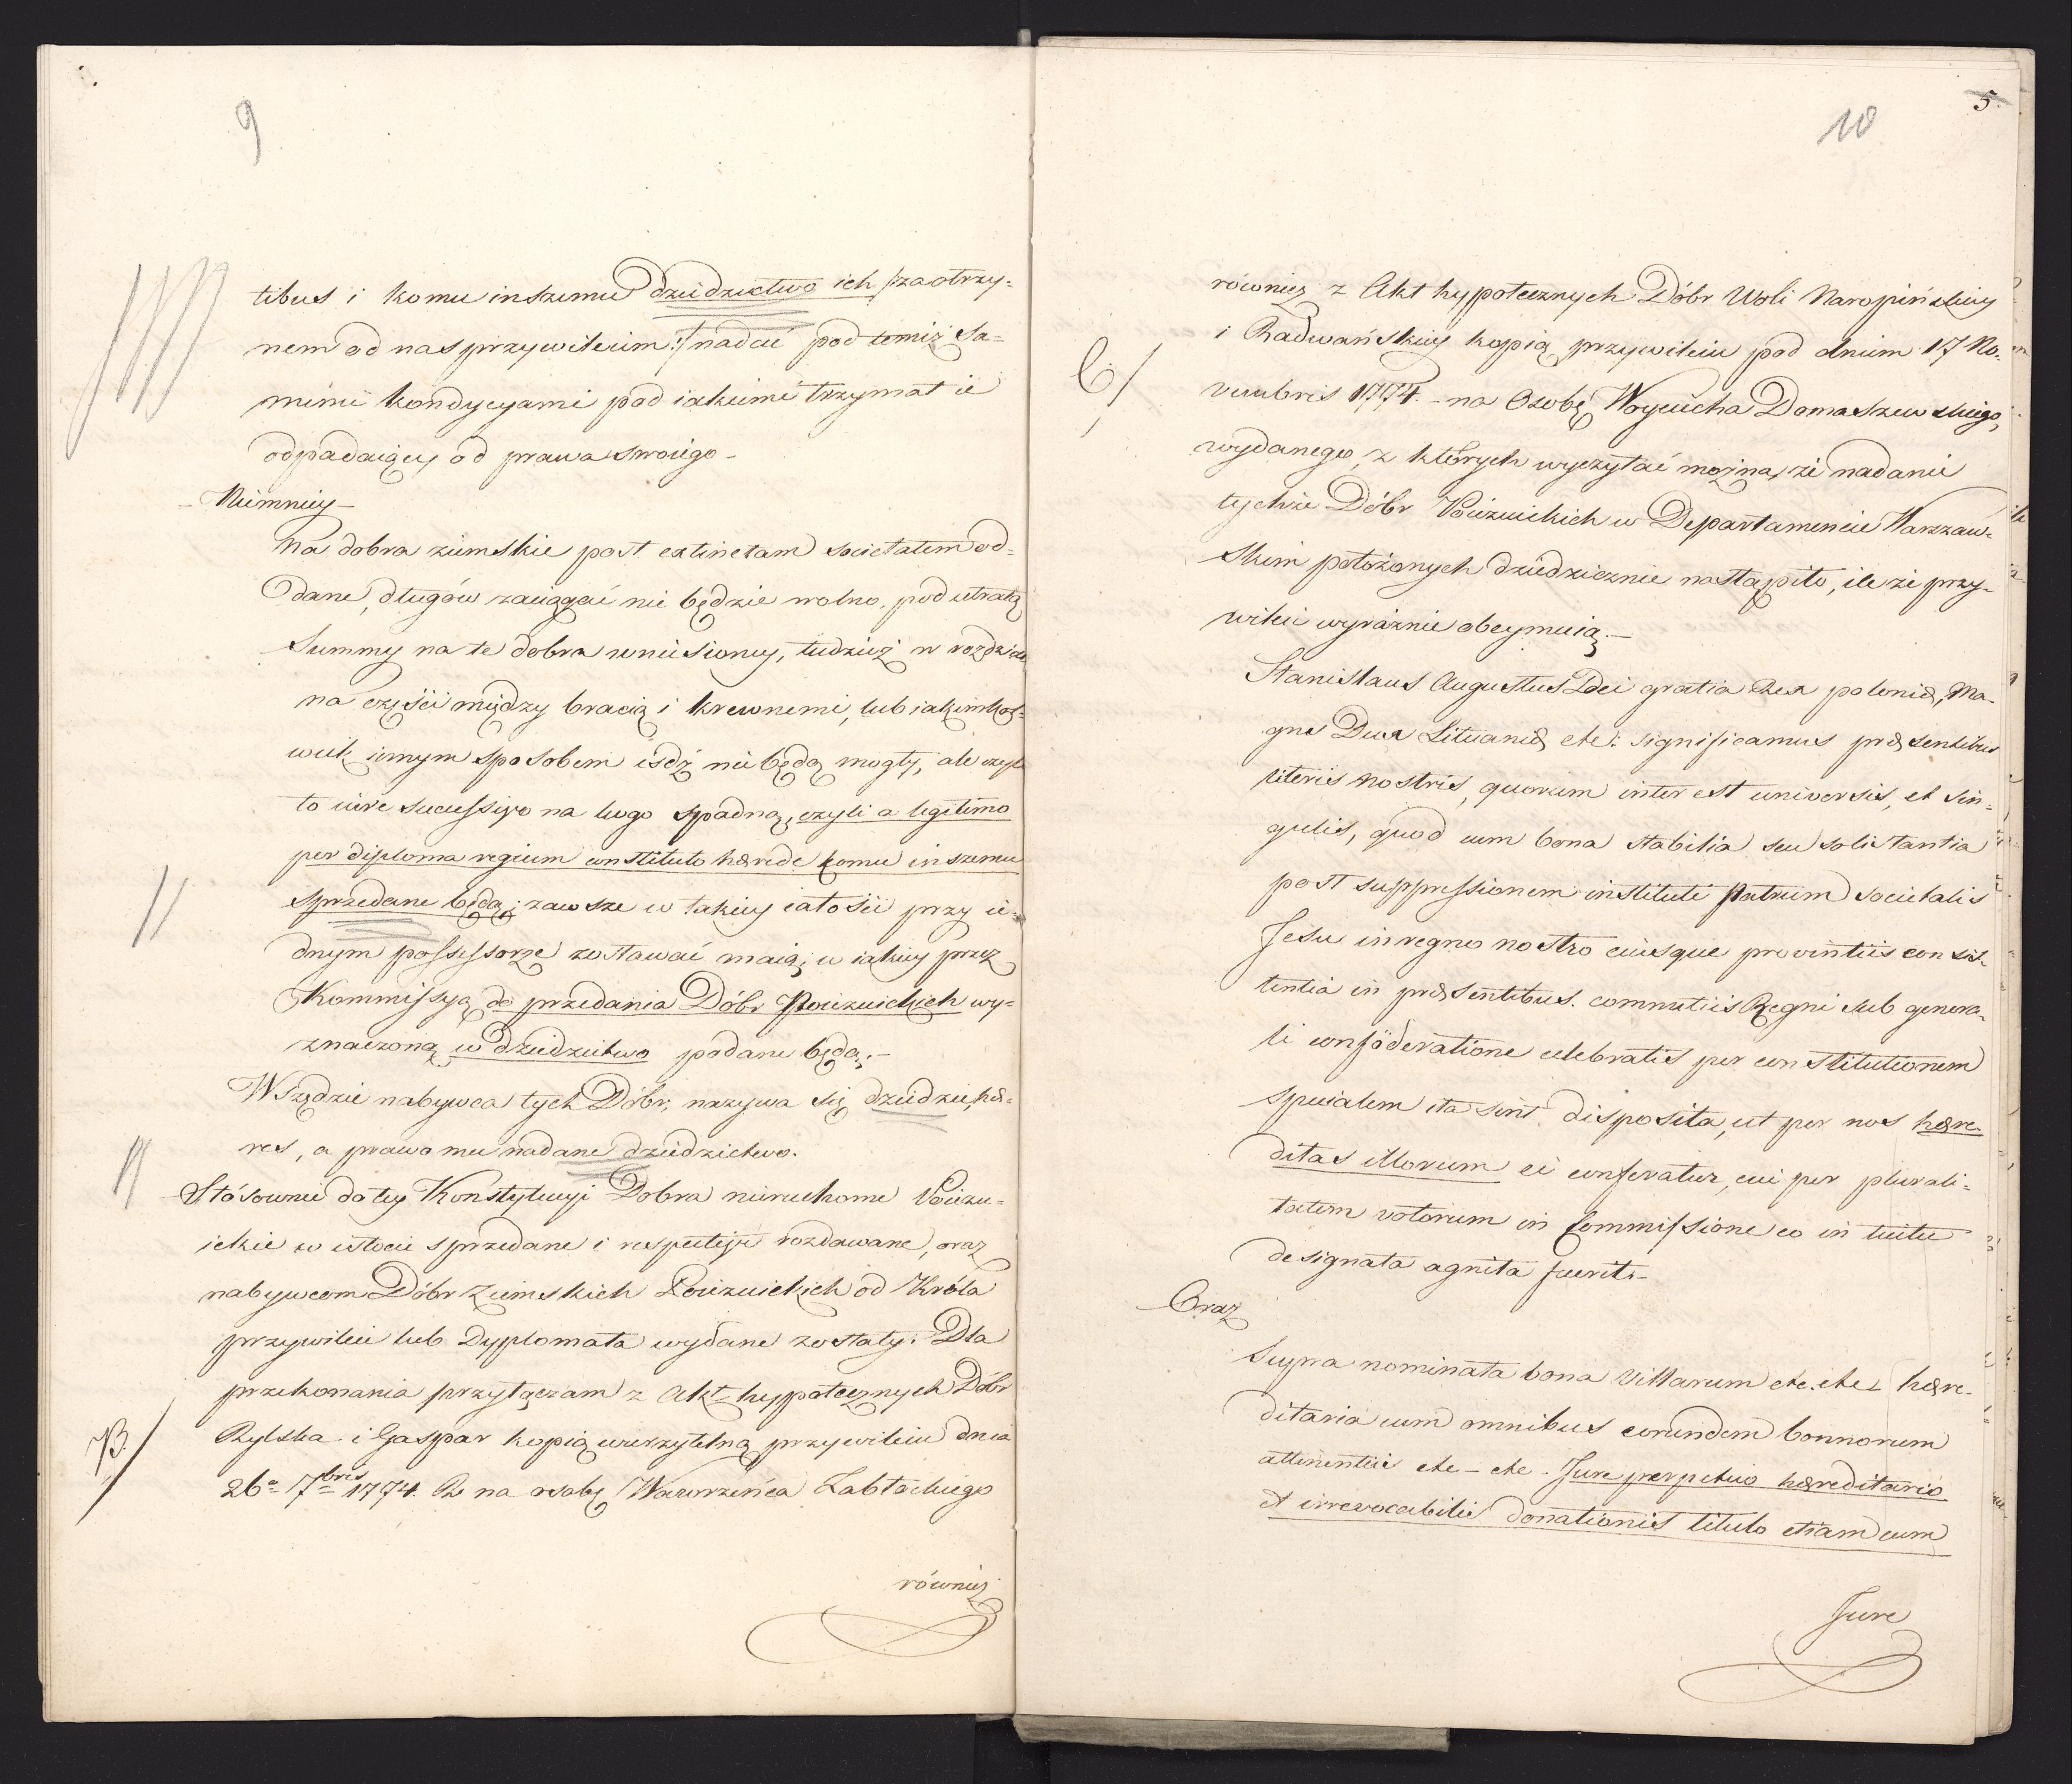 9
tibus i komu inszemu dziedzictwo ich /za otrzy-
nem od nas przywileiem:/ nadać pod temiż sa-
memi kondycyami pod iakiemi trzymał ie
odpadaiący od prawa swoiego -
- Niemniey -
Na dobra ziemskie post extinctam societatem od-
dane, długów zaciągać nie będzie wolno, pod utratą
Summy na te dobra wniesioney, tudzież w rozdział
na części między bracią i krewnemi, lub iakimkol-
wiek innym sposobem iśdź nie będą mogły, ale czyli
to iure successivo na kogo spadną, czyli a legitimo
per diploma regium constituto hærede komu inszemu
sprzedane będą; zawsze w takiey całości przy ie-
dnym possessorze zostawać maią, w iakiey przez
Kommissyą do przedania Dóbr Poiezuickich wy-
znaczoną w dziedzictwo podane będą. -
Wszędzie nabywca tych Dóbr, nazywa się dziedzic, hæ-
res, a prawo mu nadane dziedzictwo.
Stósownie do tey Konstytucyi Dobra nieruchome Poiezu-
ickie w istocie sprzedane i respective rozdawane, oraz
nabywcom Dóbr Ziemskich Poiezuickich od Króla
przywileie lub Dyplomata wydane zostały. Dla
przekonania przyłączam z Akt hyppotecznych Dóbr
B/
Rylska i Gaspar kopią wierzytelną przywileiu dnia
26° 7bris 1774. R. na osobę Wawrzeńca Łabłockiego
równiez
10
5.
równiez z Akt hypotecznych Dóbr Woli Naropińskiey
i Radwańskiey kopią przywileiu pod dniem 17 No-
C/
vembris 1774. - na Osobę Woyciecha Domaszewskiego,
wydanego, z których wyczytać można, że nadanie
tychże Dóbr Poiezuickich w Departamencie Warszaw-
skim położonych dziedzicznie nastąpiło, ile że przy-
wileie wyraźnie obeymuią. -
Stanislaus Augustus Dei gratia Rex poloniæ, Ma-
gnus Dux Lituaniæ etc: significamus præsentibus
literis nostris, quorum interest universis, et sin-
gulis, quod cum bona stabilia seu solistantia
post suppressionem instituti Patrum societatis
Jesu in regno nostro eiusque provintiis consis-
tentia in præsentibus. commitiis Regni sub genera-
li confœderatione celebratis per constitutionem
specialem ita sint disposita, ut per nos hære-
ditas illorum ei conferatur, cui per plurali-
tatem votorum in Commissione eo intuitu
designata agnita fuerit. -
Oraz
Supra nominata bona Villarum etc. etc. hære-
ditaria cum omnibus eorundem bonnorum
attinentiis etc - etc. Jure perpetuo hæreditario
et irrevocabilis donationis titulo etiam cum
Jure